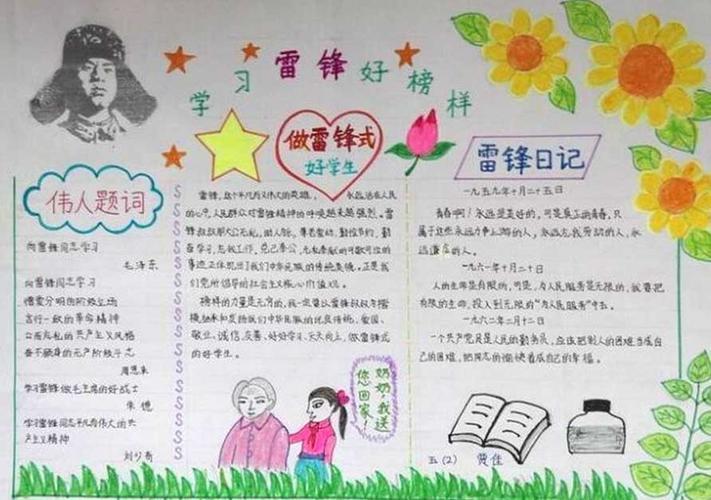 学习雷锋好榜样
做雷锋式
好学生
伟人题词
向雷锋同志学习
毛泽东
向雷锋同志学习
憎爱分明的阶级立场
言行一致的革命精神
公而忘私的共产主义风格
奋不顾身的无产阶级斗志
周恩来
学习雷锋做毛主席的好战士
朱德
学习雷锋同志平凡而伟大的共
产主义精神
刘少奇
雷锋,这个平凡而又伟大的英雄, 永远活在人民
的心中,人民群众对雷锋精神的呼唤越来越强烈。雷
锋叔叔那大公无私,助人为乐,尊老爱幼,勤俭节约,勤
奋学习,忘我工作,克己奉公,无私奉献的可歌可泣的
事迹正体现出了我们中华民族的传统美德,正是我
们党所倡导的社会主义核心价值观。
榜样的力量是无穷的,我一定要以雷锋叔叔为楷
模,继承和发扬我们中华民族的优良传统,爱国、
敬业、诚信、友善,好好学习,天天向上,做雷锋式
的好学生。
奶奶,我送
您回家!
雷锋日记
一九五九年十月二十五日
青春啊!永远是美好的,可是真正的青春,只
属于这些永远力争上游的人,永远忘我劳动的人,永
远谦虚的人。
一九六一年十月二十日
人的生命是有限的,可是,为人民服务是无限的,我要把
有限的生命,投入到无限的“为人民服务”中去。
一九六二年二月十二日
一个共产党员是人民的勤务员,应该把别人的困难当成自
己的困难,把同志的愉快看成自己的幸福。
五(2) 贾佳